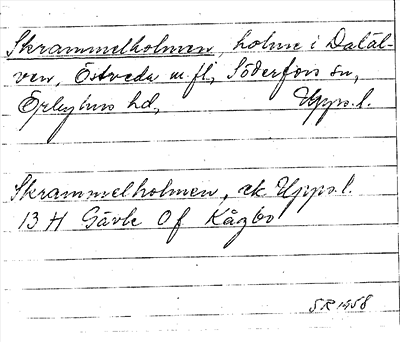 Skrammelholmen, holme i Daläl-
ven, Östveda m.fl., Söderfors sn,
Örbyhus hd, Upps.l.
Skrammelholmen, ek. Upps.l.
13 H Gävle Of Kågbo
SR 1958